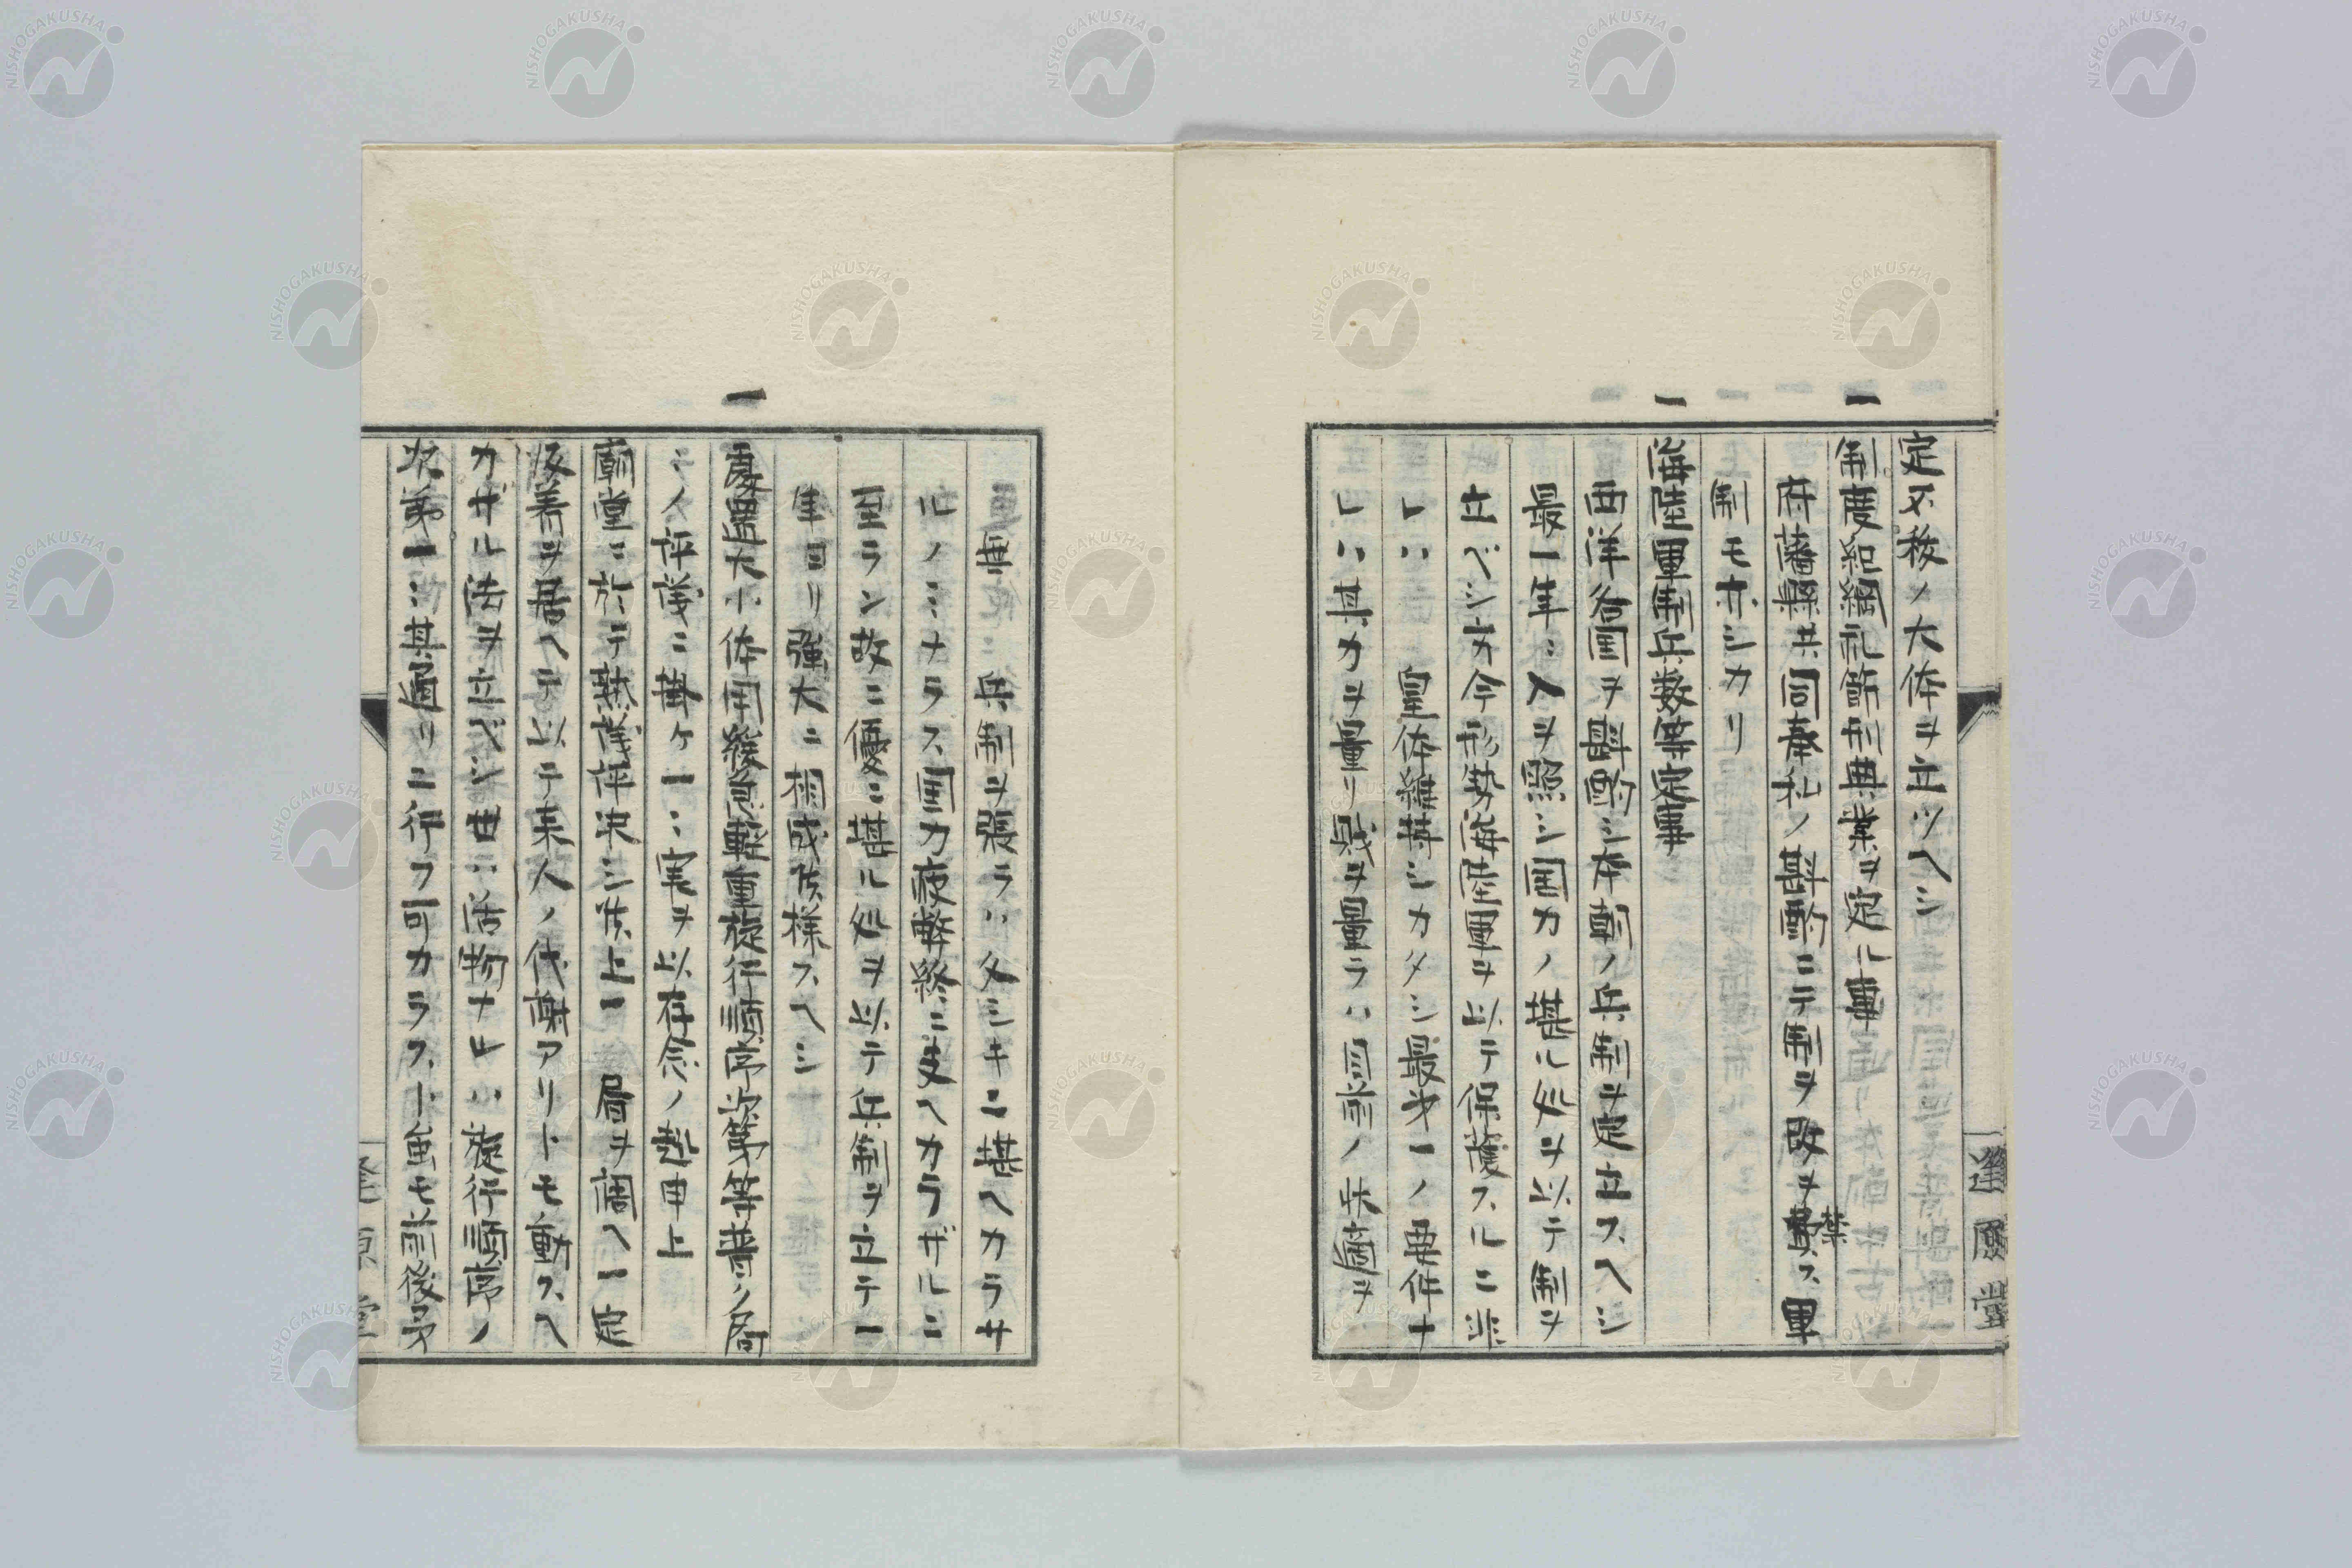 定不移ノ大体ヲ立ツヘシ
一 制度紀綱礼節刑典業ヲ定ル事
府藩県共同奉私ノ斟酌ニテ制ヲ改ヲ業ス軍
制モホシカリ
一 海陸軍制兵数等定事
西洋各国ヲ斟酌シ本朝ノ兵制ヲ定立スヘシ
最一年ニ入ヲ照シ国力ノ堪ル処ヲ以テ制ヲ
立ベシ方今形勢海陸軍ヲ以テ保護スルニ非
レハ 皇体維持シカタシ最第一ノ要件ナ
レハ其力ヲ量リ哉ヲ量ラハ目前ノ 適ヲ
無 兵制ヲ張ラハ久シキニ堪ヘカラサ
ルノミナラス国力疲弊終ニ支ヘカラザルニ
至ラン故ニ優ニ堪ル処ヲ以テ兵制ヲ立テ一
年ヨリ強大ニ相成候様スヘシ
一 処置大小体用緩急軽重施行順序次第等普ク商
ニノ評議ニ掛ケ一々実ヲ以存念ノ趣申上
廟堂ニ於テ熟議評決シ候上一局ヲ調ヘ一定
仮着ヲ居ヘテ以テ来人ノ代謝アリトモ動スヘ
カザル法ヲ立ベシ世ハ活物ナレハ施行順序ノ
次第一々其通リニ行フ可カラスト虽モ前後多
進風堂